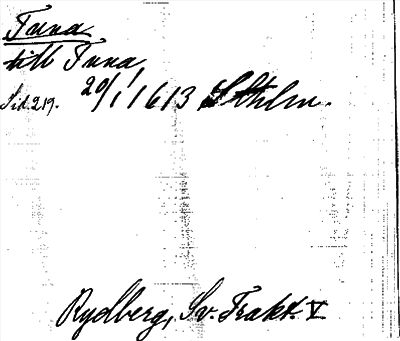 Tuna
till Tuna
Sid. 219. 20/1 1613 Sthlm.
Rydberg, Sv. Trakt. V